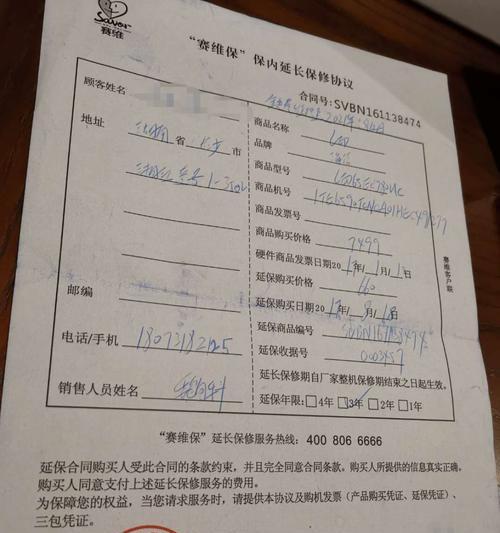 Saver
赛维
“赛维保”保内延长保修协议
合同号:SVBN161138474
顾客姓名
地址 湖南 省 长沙 市
邮编
电话/手机 18073182125
销售人员姓名
商品名称 LED
品牌 海信
商品型号
商品机号
商品发票号
商品购买价格 7499
硬件商品发票日期201 年 1 月 1 日
延保购买价格 160
延保购买日期201 年 月 1 日
延保商品编号
延保收据号 0003457
延长保修期自厂家整机保修期结束之日起生效。
延保年限:□4年 □3年 □2年 □1年
赛维客户联
“赛维保”延长保修服务热线: 400 806 6666
延保合同购买人受此合同的条款约束，并且完全同意合同条款。购买人所提供的信息真实正确。
购买人同意支付上述延长保修服务的费用。
为保障您的权益，当您请求服务时，请提供本协议及购机发票（产品购买凭证、延保凭证）、
三包凭证。